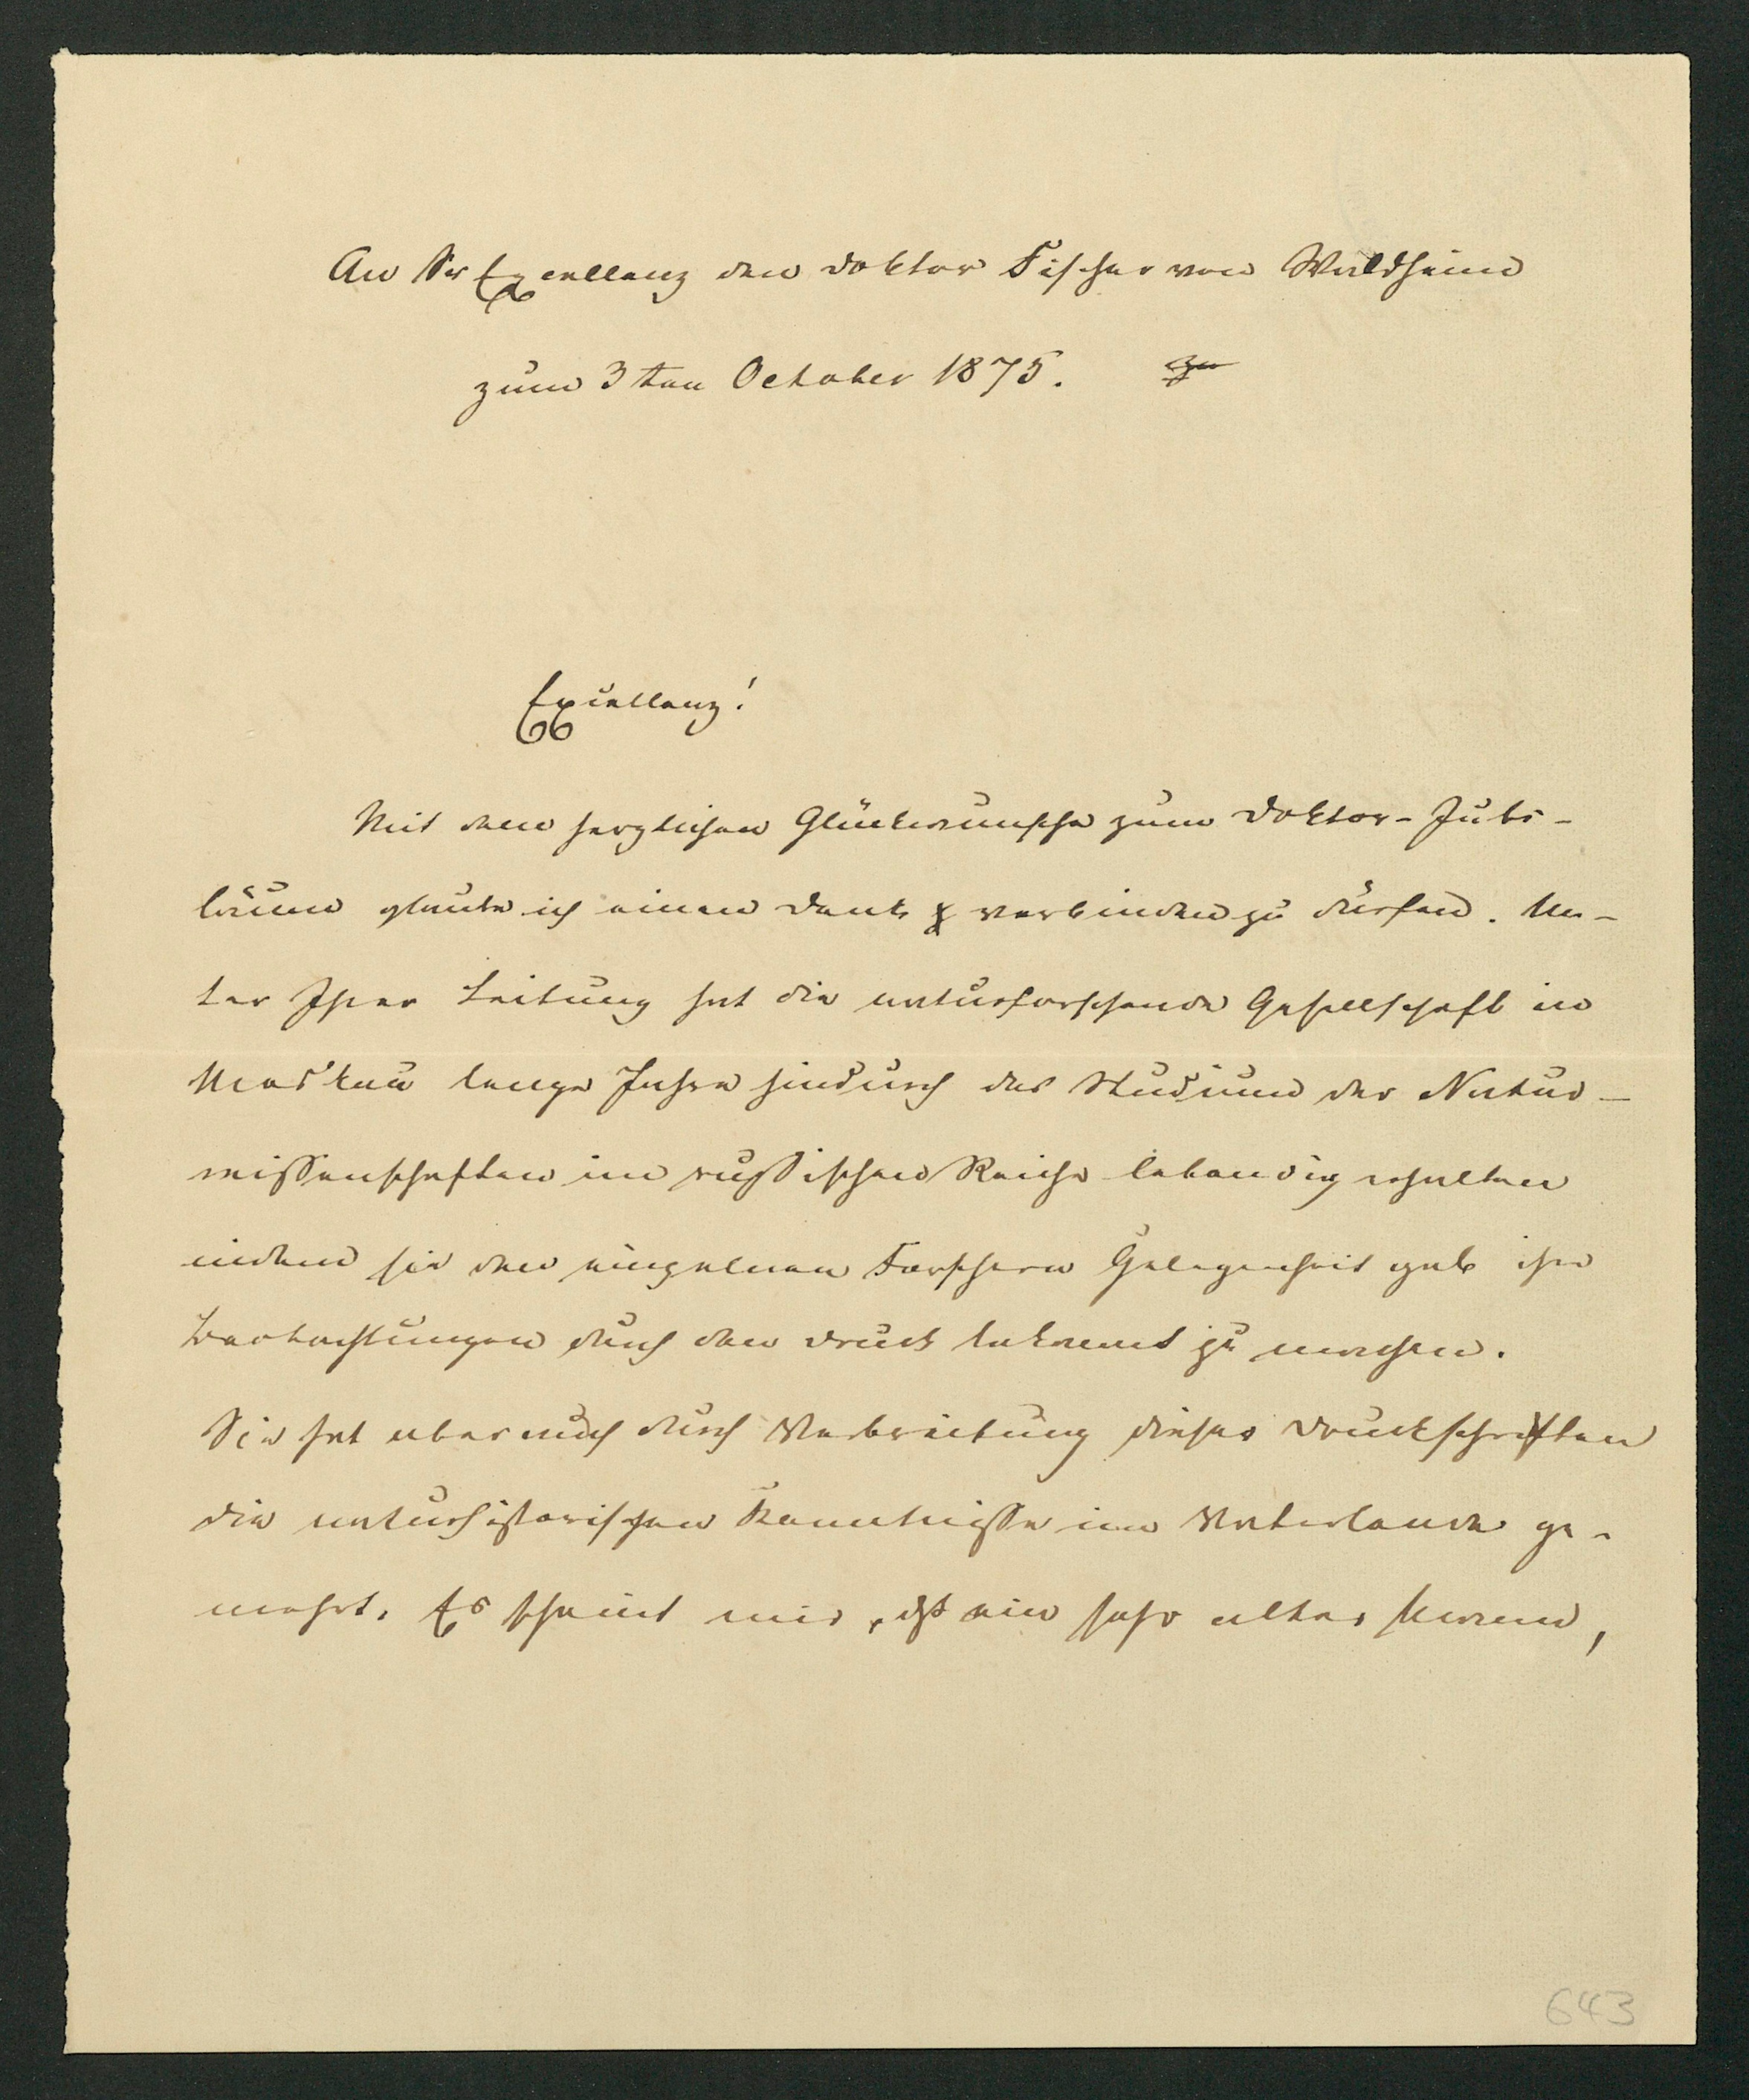 An Sr Excellenz den Doktor Fischer von Waldheim
zum 3ten October 1875. zu
Excellenz!
Mit dem herzlichen Glückwunsche zum Doktor-Jubi-
läum glaube ich einen Dank verbinden zu dürfen. Un-
ter Ihrer Leitung hat die naturforschende Gesellschaft in
Moskau lange Jahre hindurch das Studium der Natur-
wissenschaften im russischen Reiche lebendig erhalten
indem sie den einzelnen Forschern Gelegenheit gab ihre
Beobachtungen durch den Druck bekannt zu machen.
Sie hat aber auch durch Verbreitung dieser Druckschriften
die naturhistorischen Kenntnisse im Vaterlande ge-
mehrt. Es scheint mir, dß ein sehr alter
643